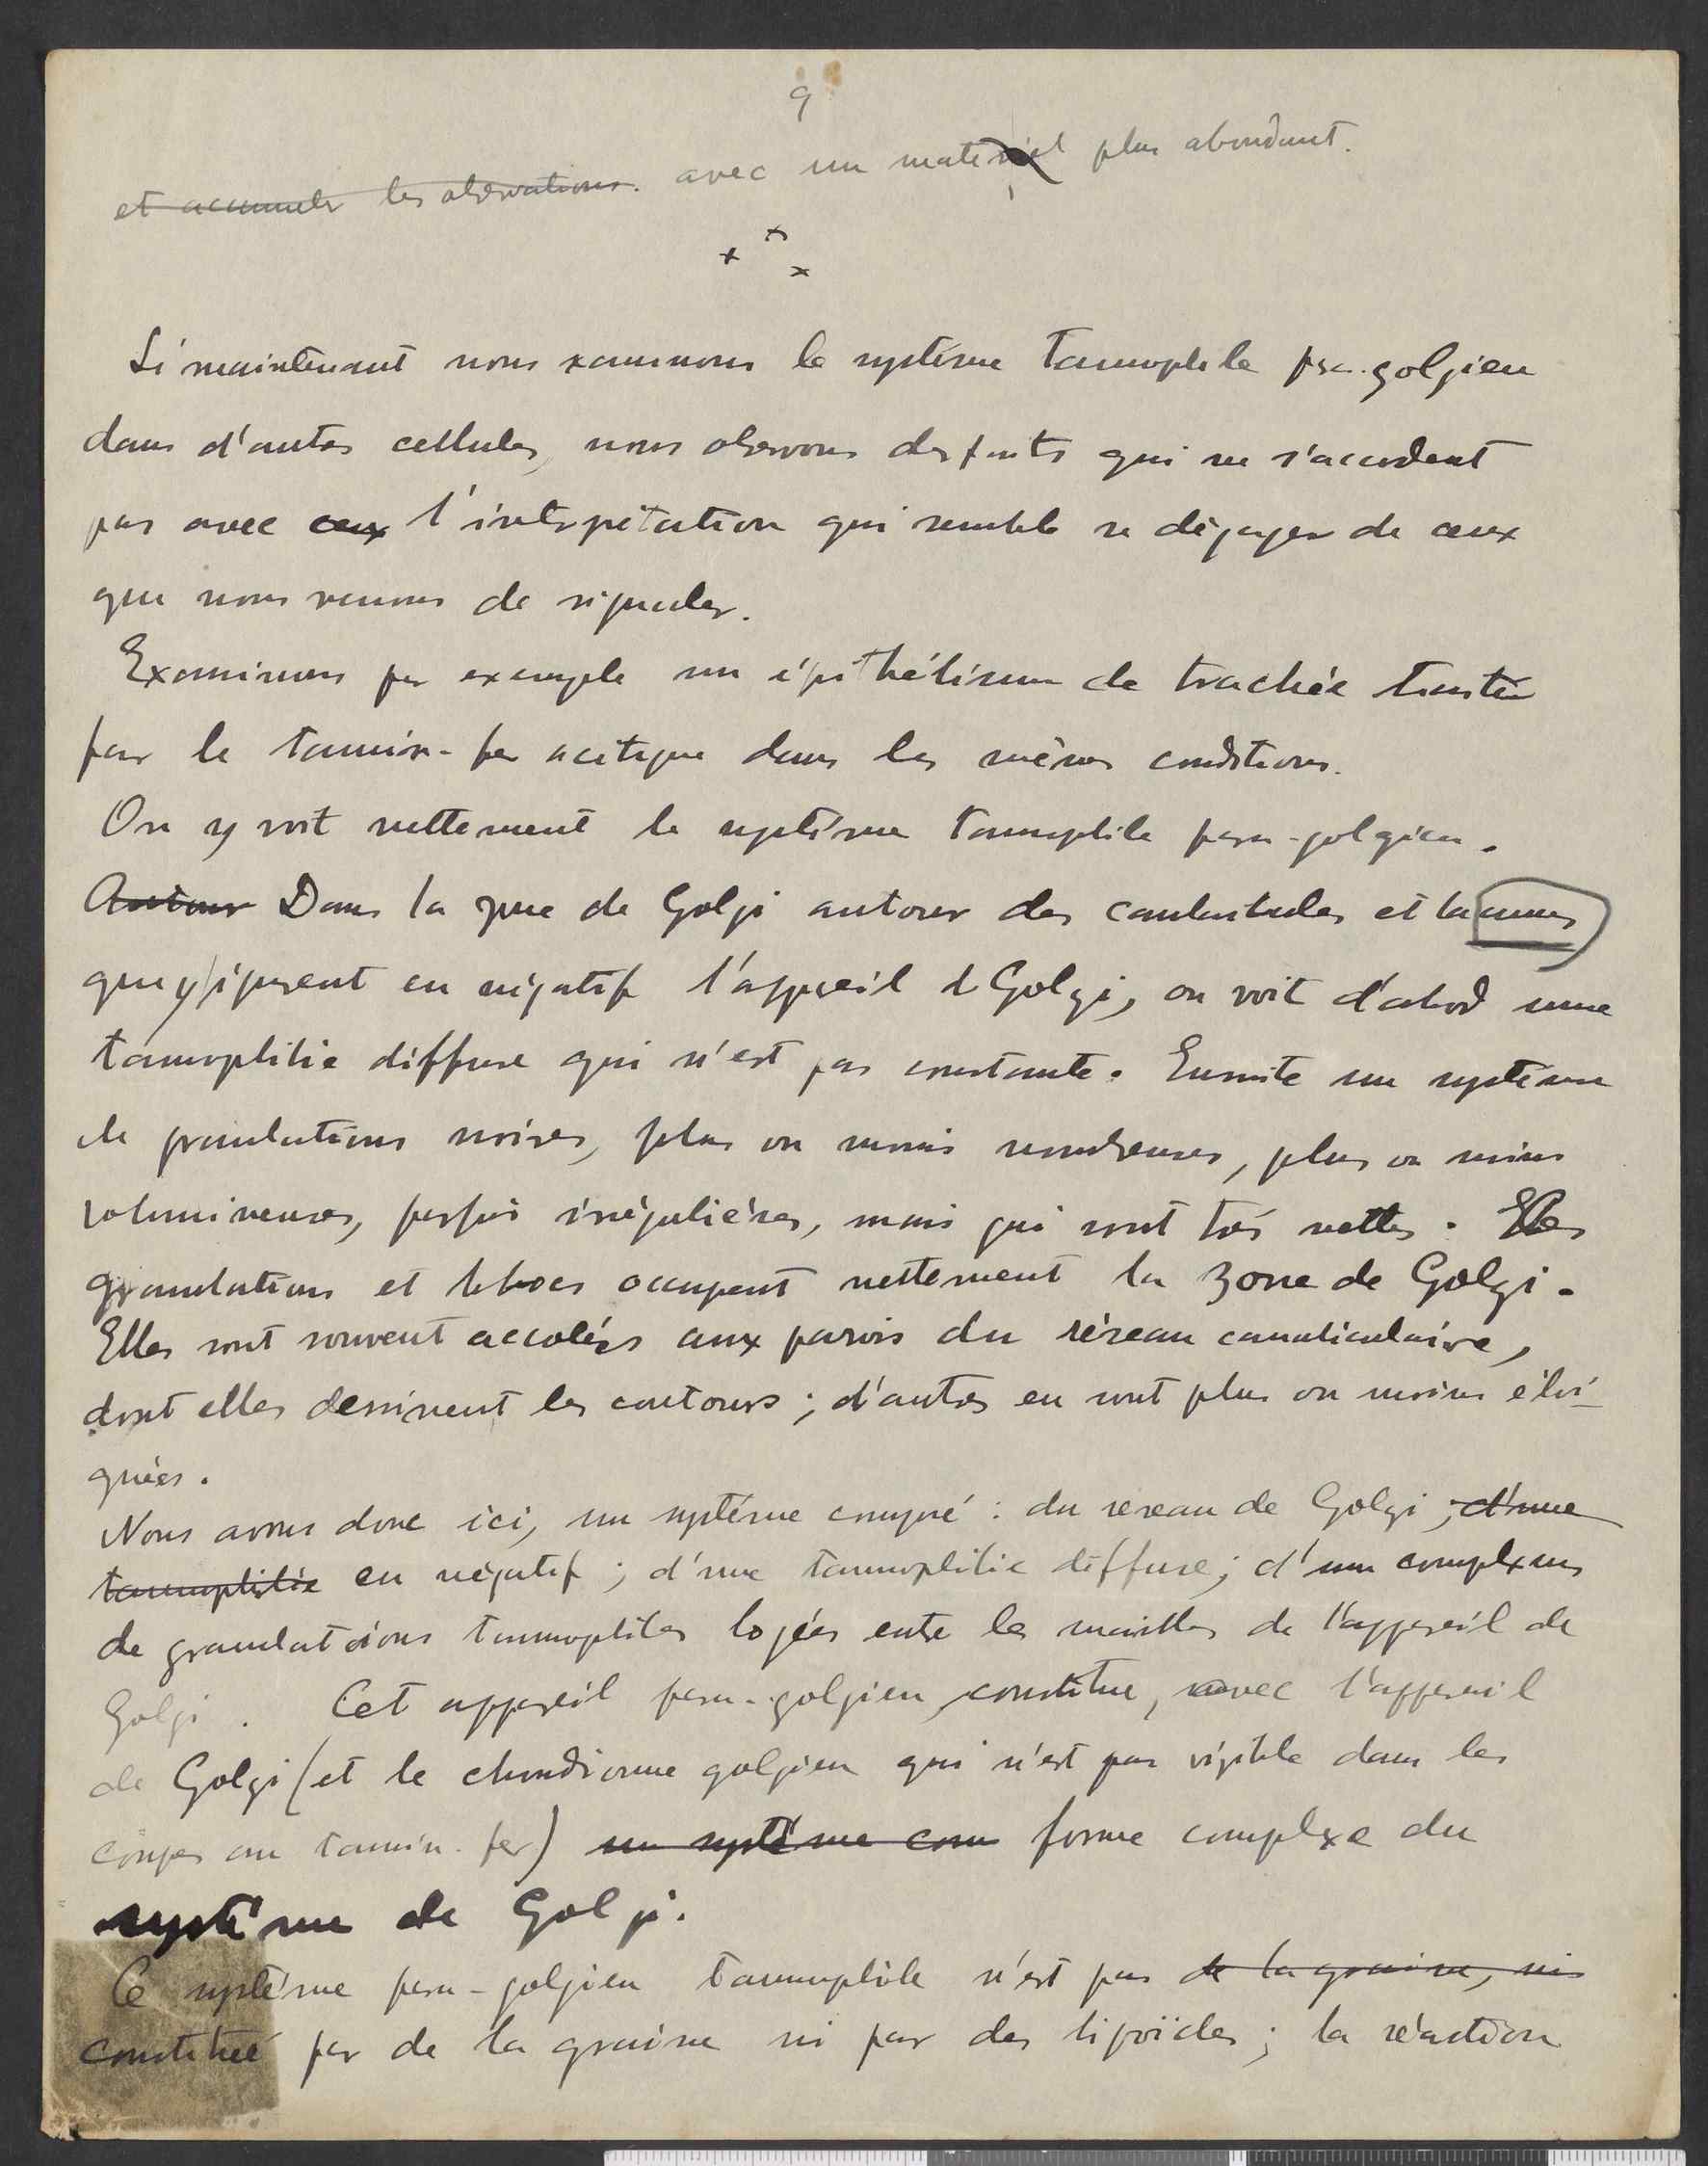 9
et accumuler les observations. avec un matériel plus abondant.
+ + x
Si maintenant nous examinons le système tannophile para-golgien
dans d'autres cellules, nous observons des faits qui ne s'accordent
pas avec ceux l'interprétation qui semble se dégager de ceux
que nous venons de signaler.
Examinons par exemple un épithélium de trachée traité
par le tannin-fer acétique dans les mêmes conditions.
On y voit nettement le système tannophile para-golgien.
Autour Dans la zone de Golgi autour des canalicules et lacunes
que y figurent en négatif l'appareil de Golgi, on voit d'abord une
tannophilie diffuse qui n'est pas constante. Ensuite un système
de granulations noires, plus ou moins nombreuses, plus ou moins
volumineuses, parfois irrégulières, mais qui sont très nettes. Ces
granulations et blocs occupent nettement la zone de Golgi.
Elles sont souvent accolées aux parois du réseau canaliculaire,
dont elles dessinent les contours ; d'autres en sont plus ou moins éloi-
gnées.
Nous avons donc ici, un système composé : du reseau de Golgi ; d'une
tannophilie en négatif ; d'une tannophilie diffuse ; d'un complexus
de granulations tannophiles logées entre les mailles de l'appareil de
Golgi. Cet appareil para-golgien constitue, avec l'appareil
de Golgi (et le chondriome golgien qui n'est pas visible dans les
coupes au tannin-fer) un système com forme complexe du
système de Golgi.
Ce système para-golgien tannophile n'est pas de la graisse, ni
constitué par de la graisse ni par des lipoïdes ; la réaction